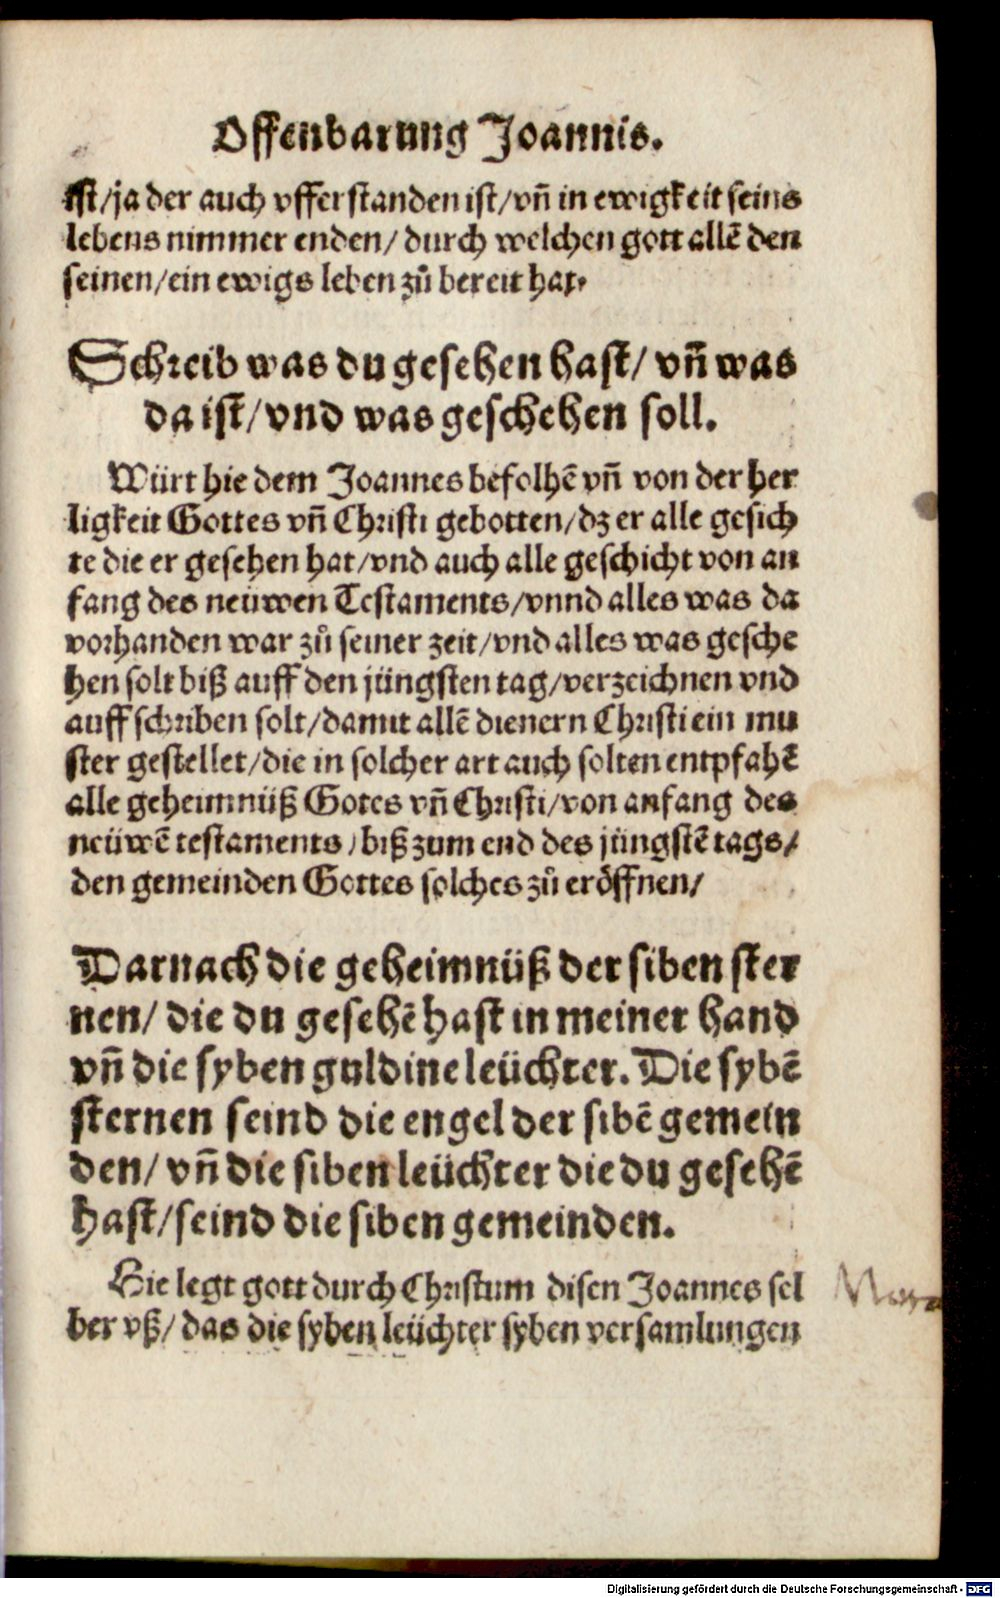 Offenbarung Joannis.
ist/ja der auch vfferstanden ist/vñ in ewigkeit seins
lebens nimmer enden/durch welchen gott allẽ den
seinen/ein ewigs leben zů bereit hat.
Schreib was du gesehen hast/ vñ was
da ist/vnd was geschehen soll.
Würt hie dem Joannes befolhẽ vñ von der her
ligkeit Gottes vñ Christi gebotten/dz er alle gesich
te die er gesehen hat/vnd auch alle geschicht von an
fang des neüwen Testaments/vnnd alles was da
vorhanden war zů seiner zeit/vnd alles was gesche
hen solt biß auff den jüngsten tag/verzeichnen vnd
auff schriben solt/damit allẽ dienern Christi ein mu
ster gestellet/die in solcher art auch solten entpfahẽ
alle geheimnüß Gotes vñ Christi/von anfang des
neüwẽ testaments/biß zum end des jüngstẽ tags/
den gemeinden Gottes solches zů eröffnen/
Darnach die geheimnüß der siben ster
nen/ die du gesehẽ hast in meiner hand
vñ die syben guldine leüchter. Die sybẽ
sternen seind die engel der sibẽ gemein
den/ vñ die siben leüchter die du gesehẽ
hast/seind die siben gemeinden.
Hie legt gott durch Christum disen Joannes sel
ber vß/ das die syben leüchter syben versamlungen
Digitalisierung gefördert durch die Deutsche Forschungsgemeinschaft - DFG